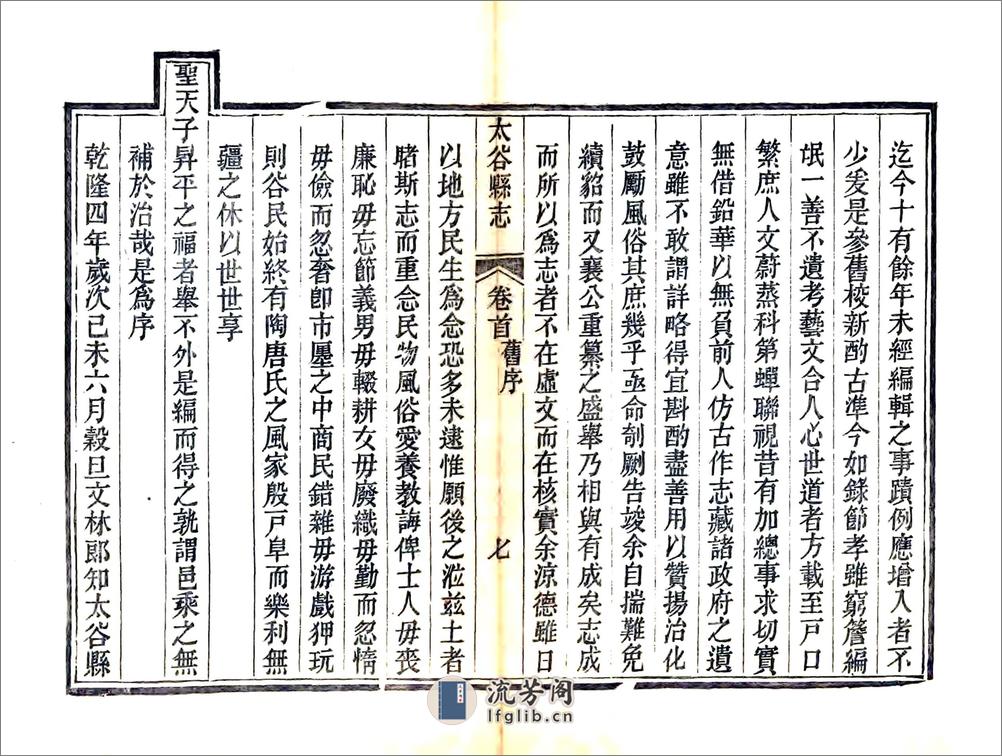 迄今十有餘年未經編輯之事蹟例應增入者不
少爰是參舊梭新酌古準今如錄節孝雖窮簷編
氓一善不遺考藝文合人心世道者方載至戸口
繁庶人文蔚蒸科第蟬聯視昔有加總事求切實
無借鉛華以無負前人仿古作志藏諸政府之遺
意雖不敢謂詳略得宜斟酌盡善用以贊揚治化
鼓勵風俗其庶幾乎亟命剞劂告竣余自揣難免
續貂而又襄公重纂之盛舉乃相與有成矣志成
而所以爲志者不在虛文而在核實余涼德雖日
太谷縣志
卷首
舊序
七
以地方民生爲念恐多未逮惟願後之涖兹土者
睹斯志而重念民物風俗愛養教誨俾士人毋喪
廉恥毋忘節義男毋輟耕女毋廢織毋勤而忽惰
毋儉而忽奢卽市㕓之中商民錯雜毋游戲狎玩
則谷民始終有陶唐氏之風家殷戸阜而樂利無
疆之休以世世享
聖天子昇平之福者舉不外是編而得之孰謂邑乘之無
補於治哉是爲序
乾隆四年歲次己未六月穀旦文林郎知太谷縣
流芳阁
lfglib.cn